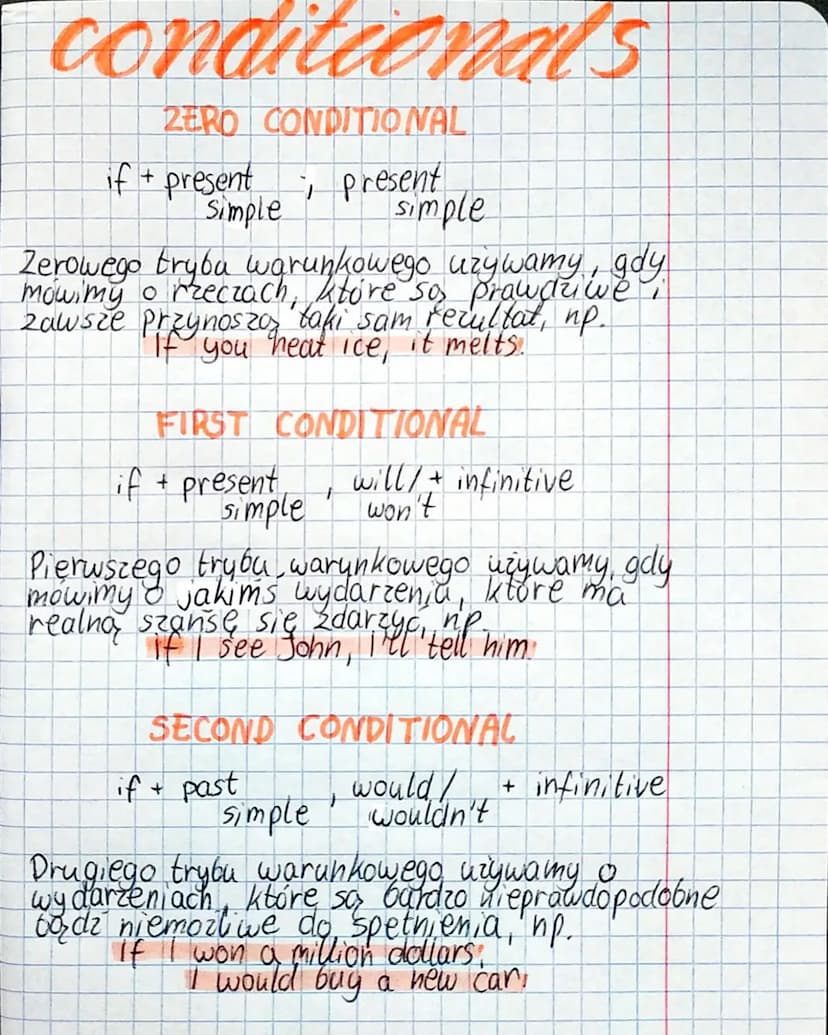 conditionals
ZERO CONDITIONAL
if + present , present
simple simple
Zerowego trybu warunkowego używamy, gdy
mówimy o rzeczach, które są prawdziwe i
zawsze przynoszą taki sam rezultat, np.
If you heat ice, it melts.
FIRST CONDITIONAL
if + present , will/ + infinitive
simple won't
Pierwszego trybu warunkowego używamy, gdy
mówimy o jakimś wydarzeniu, które ma
realną szansę się zdarzyć, np.
if I see John, I'll tell him.
SECOND CONDITIONAL
if + past , would/ + infinitive
simple wouldn't
Drugiego trybu warunkowego używamy o
wydarzeniach, które są bardzo nieprawdopodobne
bądź niemożliwe do spełnienia, np.
If I won a million dollars,
I would buy a new car.